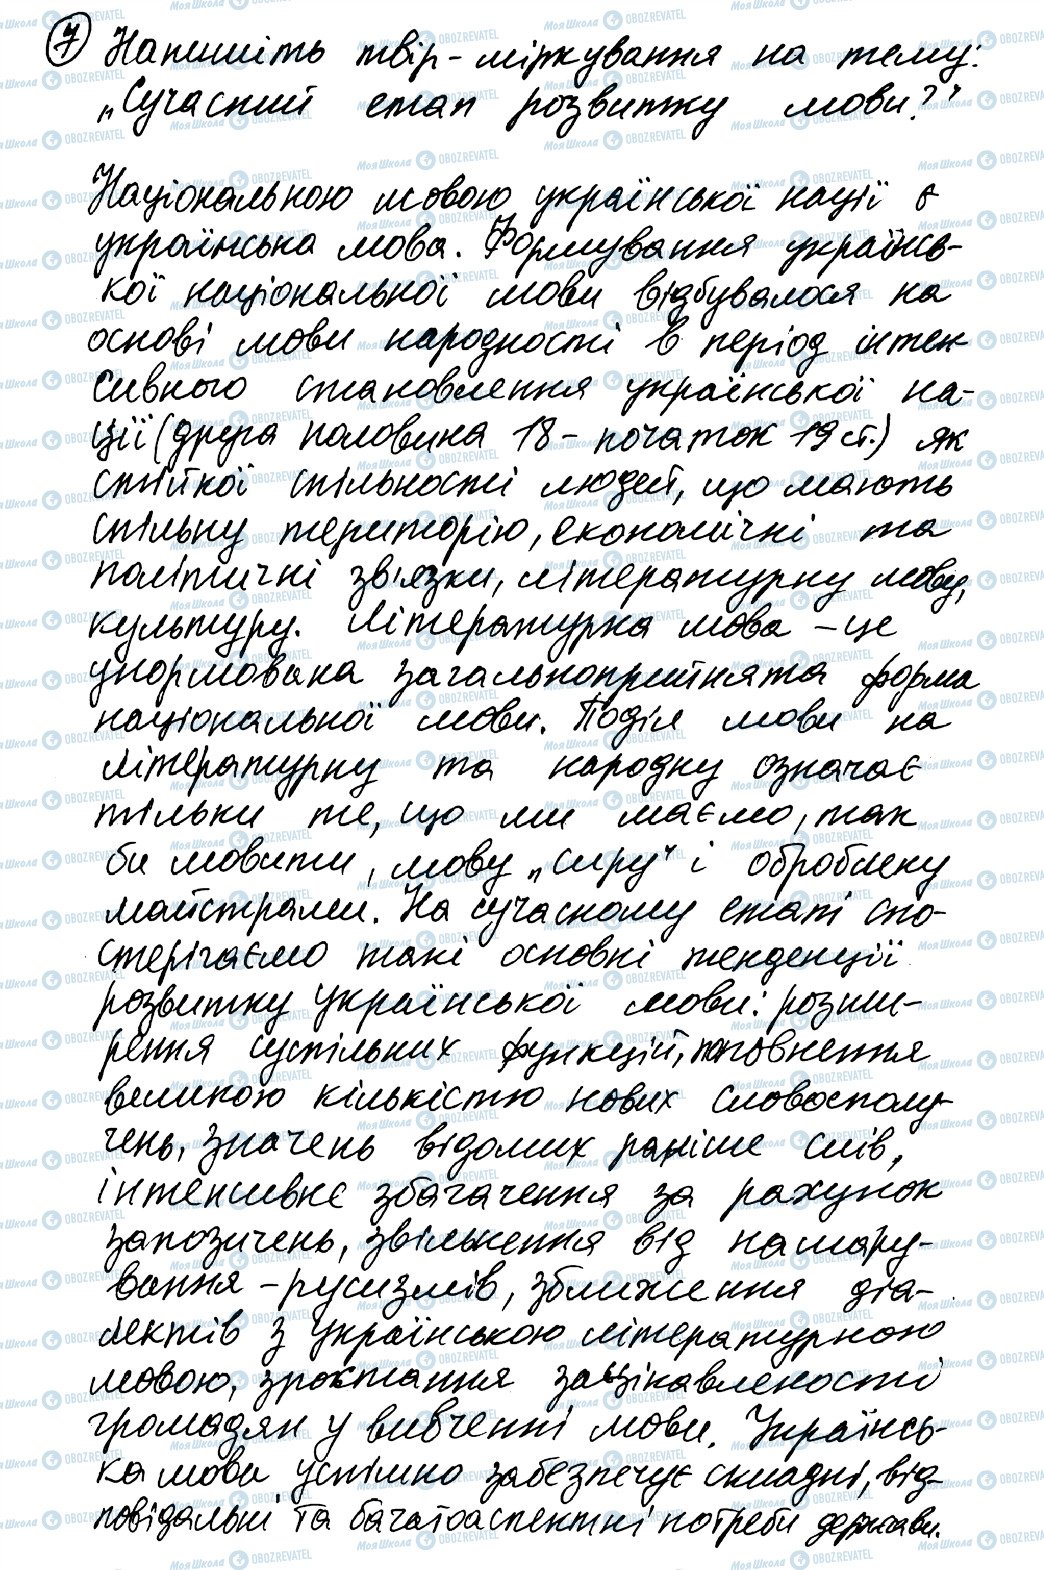 7 Напишіть твір-міркування на тему:
„Сучасний етап розвитку мови?"
Національною мовою української нації є
українська мова. Формування українсь-
кої національної мови відбувалося на
основі мови народності в період інтен
сивного становлення української на-
ції (друга половина 18 - початок 19 ст.) як
стійкої спільності людей, що мають
спільну територію, економічні та
політичні зв'язки, літературну мову,
культуру. Літературна мова – це
унормована загальноприйнята форма
національної мови. Поділ мови на
літературну та народну означає
тільки те, що ми маємо, так
би мовити, мову „сиру" і оброблену
майстрами. На сучасному етапі спо-
стерігаємо такі основні тенденції
розвитку української мови: розши-
рення суспільних функцій, поповнення
великою кількістю нових словосполу-
чень, значень відомих раніше слів,
інтенсивнє збагачення за рахунок
запозичень, звільнення від нашару-
вання - русизмів, зближення діа-
лектів з українською літературною
мовою, зростання зацікавленості
громадян у вивченні мови. Українсь-
ка мова успішно забезпечує складні, від-
повідальні та багатоаспектні потреби держави.